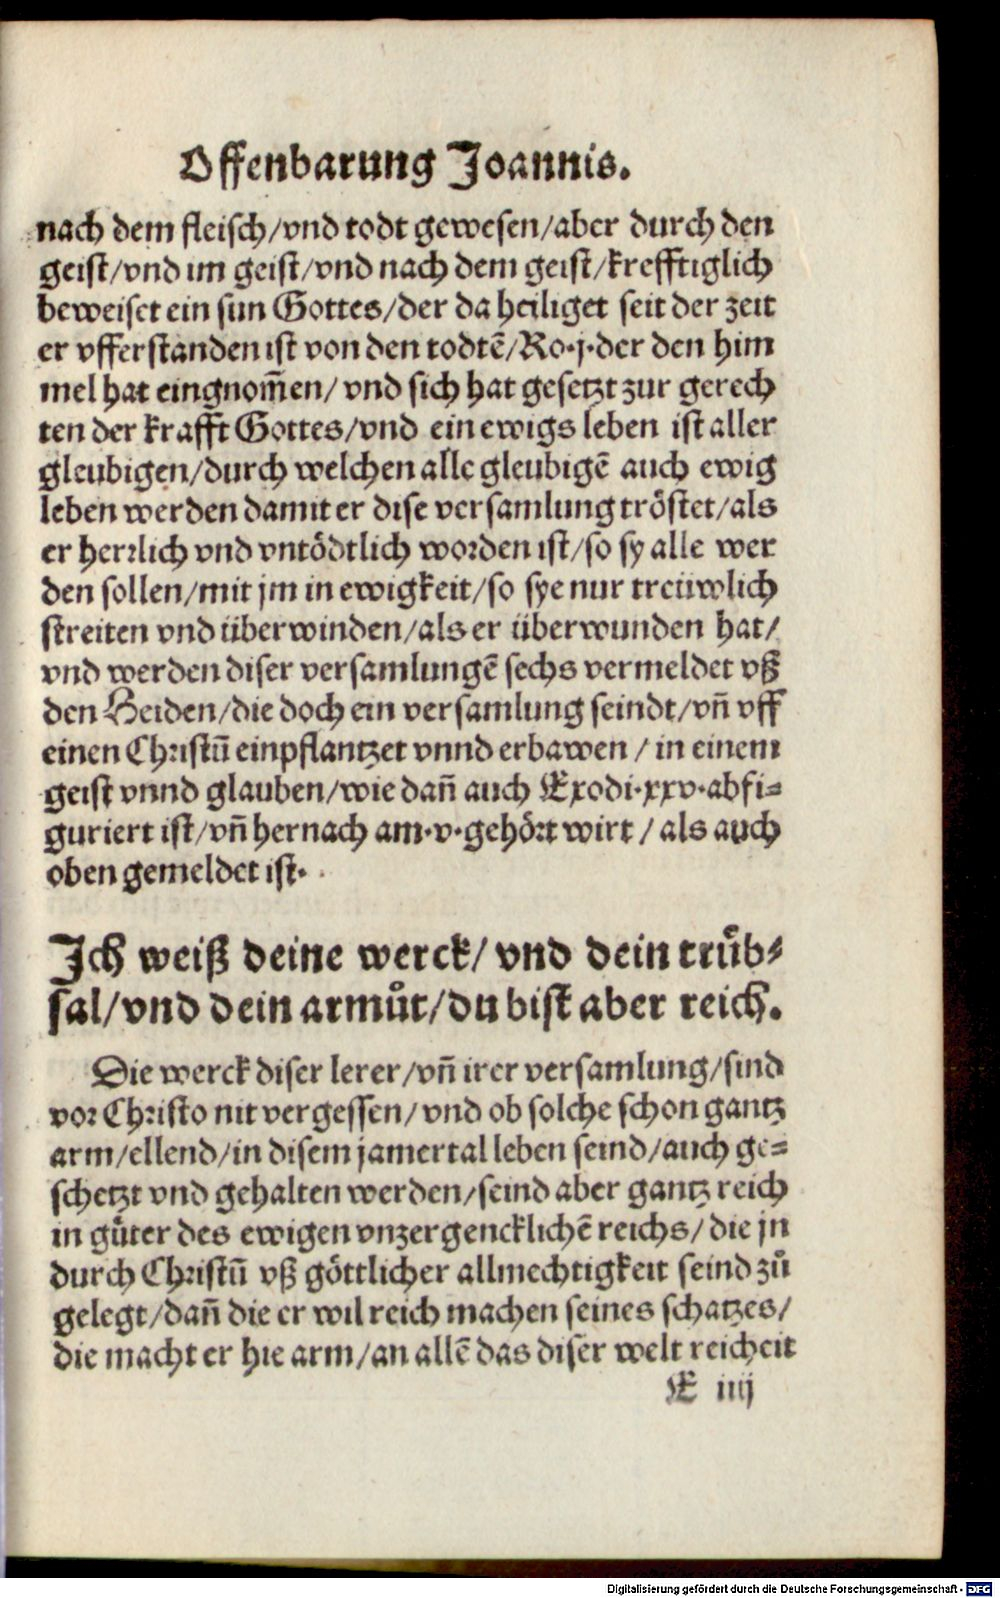 Offenbarung Joannis.
nach dem fleisch/vnd todt gewesen/aber durch den
geist/vnd im geist/vnd nach dem geist/krefftiglich
beweiset ein sun Gottes/der da heiliget seit der zeit
er vfferstanden ist von den todtē/Ro.j.der den him
mel hat eingnom̄en/ vnd sich hat gesetzt zur gerech
ten der krafft Gottes/vnd ein ewigs leben ist aller
gleubigen/durch welchen alle gleubigē auch ewig
leben werden damit er dise versamlung tröstet/als
er herrlich vnd vntödtlich worden ist/so sy alle wer
den sollen/mit jm in ewigkeit/so sye nur treüwlich
streiten vnd überwinden/als er überwunden hat/
vnd werden diser versamlungē sechs vermeldet vß
den Heiden/die doch ein versamlung seindt/vn̄ vff
einen Christū einpflantzet vnnd erbawen / in einem
geist vnnd glauben/wie dan̄ auch Exodi.xxv.abfi=
guriert ist/vn̄ hernach am.v.gehört wirt / als auch
oben gemeldet ist.
Ich weiß deine werck/ vnd dein trůb=
sal/vnd dein armůt/du bist aber reich.
Die werck diser lerer/vn̄ irer versamlung/sind
vor Christo nit vergessen/ vnd ob solche schon gantz
arm/ellend/in disem jamertal leben seind/auch ge=
schetzt vnd gehalten werden/seind aber gantz reich
in gůter des ewigen vnzergencklichē reichs/ die jn
durch Christū vß göttlicher allmechtigkeit seind zů
gelegt/dan̄ die er wil reich machen seines schatzes/
die macht er hie arm/an allē das diser welt reicheit
E iiij
Digitalisierung gefördert durch die Deutsche Forschungsgemeinschaft - DFG